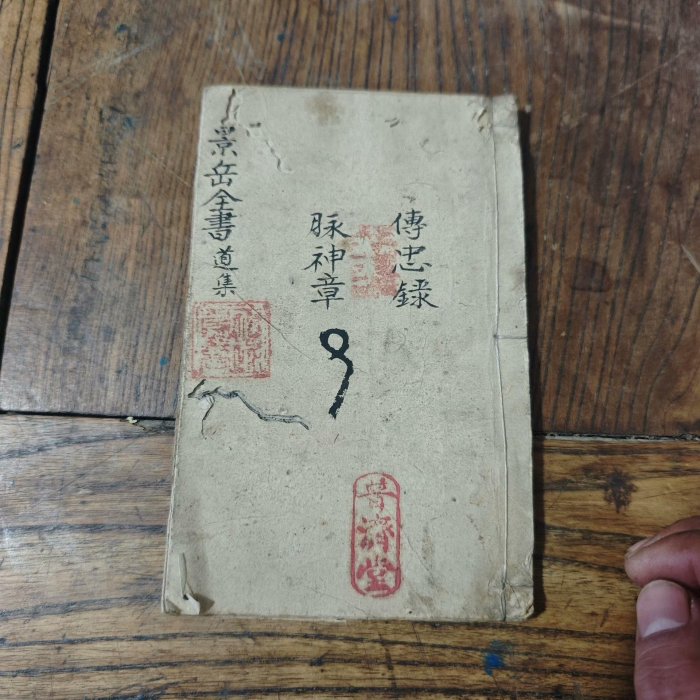 傳忠録
脉神章
景岳全書 道集
普濟堂